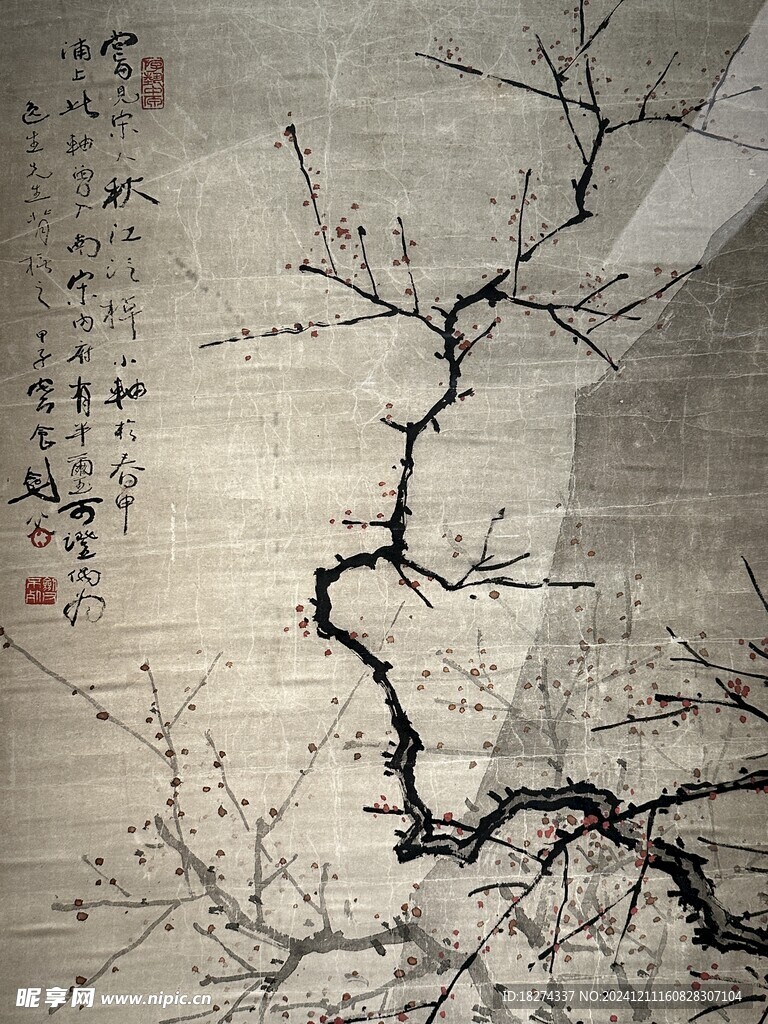 嘗見宋人秋江泛棹小軸於春申
浦上此軸曾入南宋內府有半璽可證偶為
逸生先生背橅之 甲子嘗食劍父
昵享网 www.nipic.cn
ID:18274337 NO:20241211160828307104